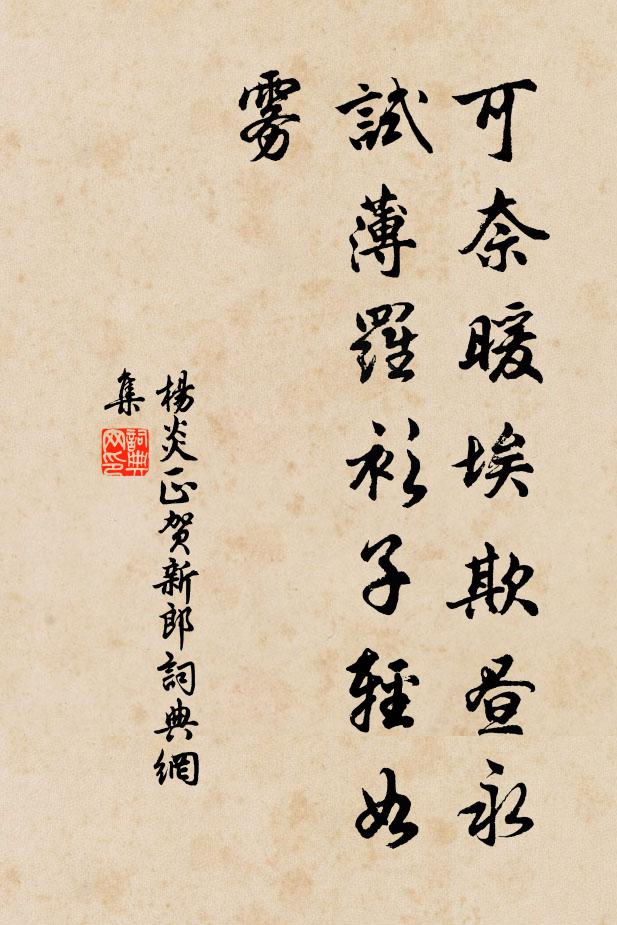 可奈暖埃欺昼永
試薄羅衫子輕如
雾
楊炎正贺新郎詞典網
集
詞典
网印